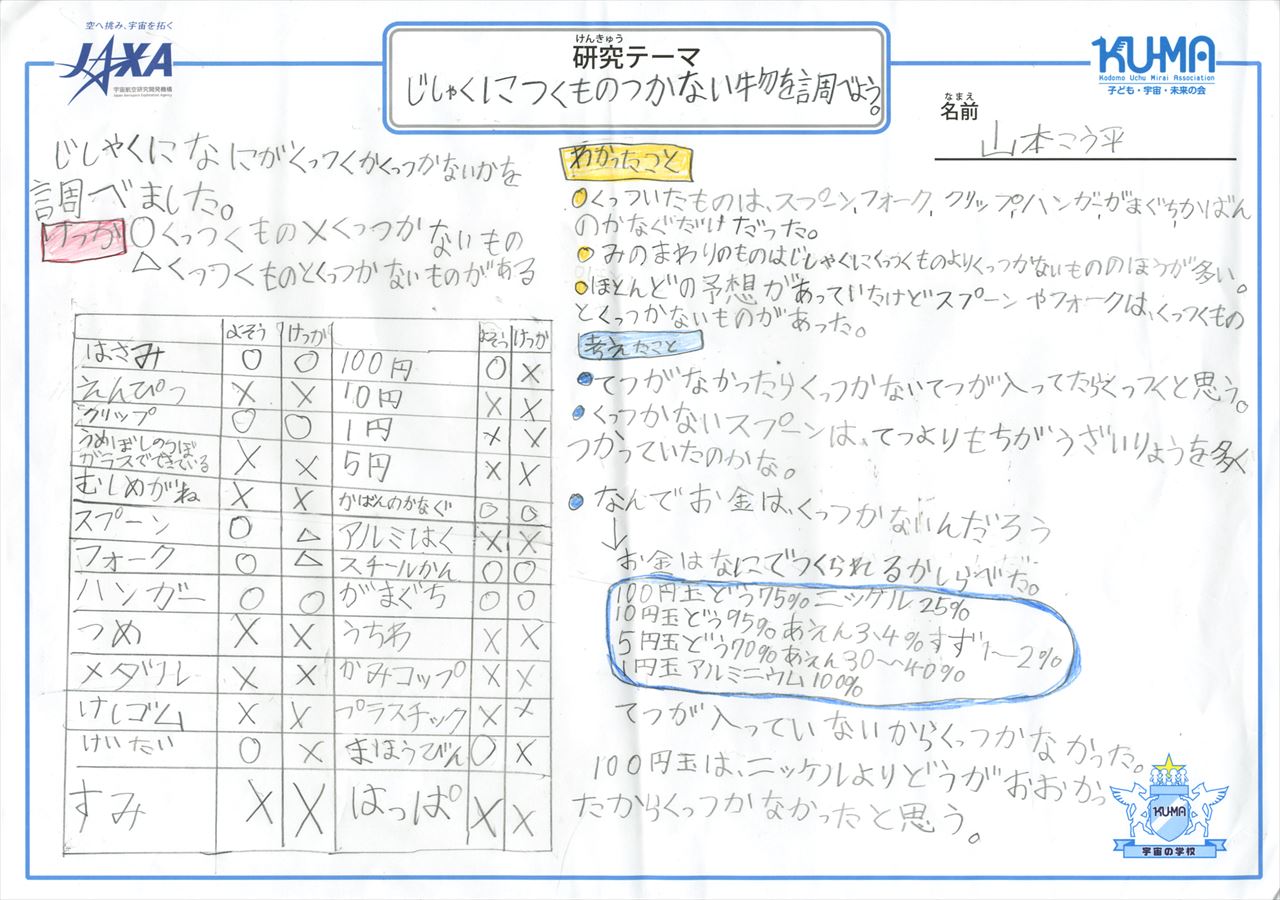 空へ挑み、宇宙を拓く
JAXA
宇宙航空研究開発機構
Japan Aerospace Exploration Agency
けんきゅう
研究テーマ
じしゃくにつくものつかない物を調べよう。
KUMA
Kodomo Uchu Mirai Association
子ども・宇宙・未来の会
なまえ
名前
山本こう平
じしゃくになにがくっつくかくっつかないかを
調べました。
けっか ○くっつくもの×くっつかないもの
△くっつくものとくっつかないものがある
よそう けっか よそう けっか
はさみ ○ ○ 100円 ○ ×
えんぴつ × × 10円 × ×
クリップ ○ ○ 1円 × ×
うめぼしのつぼ
ガラスでできている × × 5円 × ×
むしめがね × × かばんのかなぐ ○ ○
スプーン ○ △ アルミはく × ×
フォーク ○ △ スチールかん ○ ○
ハンガー ○ ○ がまぐち ○ ○
つめ × × うちわ × ×
メダル × × かみコップ × ×
けしゴム × × プラスチック × ×
けいたい ○ × まほうびん ○ ×
すみ × × はっぱ × ×
わかったこと
くっついたものは、スプーン,フォーク,クリップ,ハンガー,がまぐち,かばん
のかなぐだけだった。
みのまわりのものはじしゃくにくっつくものよりくっつかないもののほうが多い。
ほとんどの予想があっていたけどスプーンやフォークは、くっつくもの
とくっつかないものがあった。
考えたこと
てつがなかったらくっつかないてつが入ってたらくっつくと思う。
くっつかないスプーンは、てつよりもちがうざいりょうを多く
つかっていたのかな。
なんでお金は、くっつかないんだろう
↓
お金はなにでつくられてるかしらべた。
100円玉どう75%ニッケル25%
10円玉どう95%あえん3、4%すず1〜2%
5円玉どう70%あえん30〜40%
1円玉アルミニウム100%
てつが入っていないからくっつかなかった。
100円玉は、ニッケルよりどうがおおかっ
たからくっつかなかったと思う。
KUMA
宇宙の学校